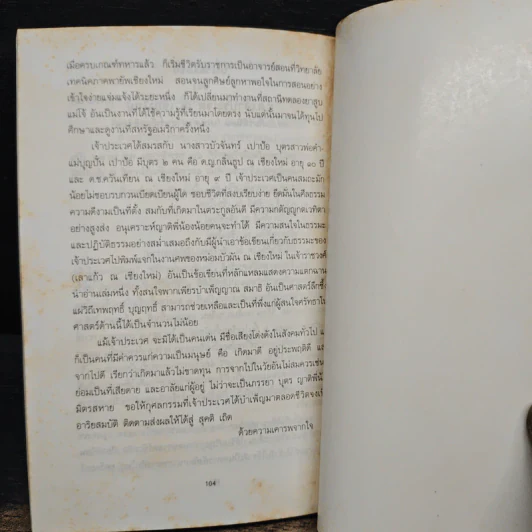 เมื่อครบเกณฑ์ทหารแล้ว ก็เริ่มชีวิตรับราชการเป็นอาจารย์สอนที่วิทยาลัย
เทคนิคภาคพายัพเชียงใหม่ สอนจนลูกศิษย์ลูกหาพอใจในการสอนอย่าง
เข้าใจง่ายแจ่มแจ้งได้ระยะหนึ่ง ก็ได้เปลี่ยนมาทำงานที่สถานีทดลองยาสูบ
แม่โจ้ อันเป็นงานที่ได้ใช้ความรู้ที่เรียนมาโดยตรง นับแต่นั้นมาจนได้ทุนไป
ศึกษาและดูงานที่สหรัฐอเมริกาครั้งหนึ่ง
เจ้าประเวศได้สมรสกับ นางสาวบัวจันทร์ เปาป้อ บุตรสาวพ่อคำ
แม่บุญปั๋น เปาป้อ มีบุตร ๒ คน คือ ด.ญ.กลิ่นธูป ณ เชียงใหม่ อายุ ๑๐ ปี
และ ด.ช.ควันเทียน ณ เชียงใหม่ อายุ ๙ ปี เจ้าประเวศเป็นคนสมถะมัก
น้อยไม่ชอบรบกวนเบียดเบียนผู้ใด ชอบชีวิตที่สงบเรียบง่าย ยึดมั่นในศีลธรรม
ความดีงามเป็นที่ตั้ง สมกับที่เกิดมาในตระกูลอันดี มีความกตัญญูกตเวทิตา
อย่างสูงส่ง อนุเคราะห์ญาติพี่น้องน้อยคนจะทำได้ มีความสนใจในธรรมะ
และปฏิบัติธรรมอย่างสม่ำเสมอถึงกับมีผู้นำเอาข้อเขียนเกี่ยวกับธรรมะของ
เจ้าประเวศไปพิมพ์แจกในงานศพของหม่อมบัวผัน ณ เชียงใหม่ ในเจ้าราชวงศ์
(เลาแก้ว ณ เชียงใหม่) อันเป็นข้อเขียนที่หลักแหลมแสดงความแตกฉาน
น่าอ่านเล่มหนึ่ง ทั้งสนใจพากเพียรบำเพ็ญญาณ สมาธิ อันเป็นศาสตร์ลึกซึ้ง
แม้วิถีเทพฤทธิ์ บุญฤทธิ์ สามารถช่วยเหลือและเป็นที่พึ่งแก่ผู้สนใจศรัทธาใน
ศาสตร์ด้านนี้ได้เป็นจำนวนไม่น้อย
แม้เจ้าประเวศ จะมิได้เป็นคนเด่น มีชื่อเสียงโด่งดังในสังคมทั่วไป แ
ก็เป็นคนที่มีค่าควรแก่ความเป็นมนุษย์ คือ เกิดมาดี อยู่ประพฤติดี แล
จากไปดี เรียกว่าเกิดมาแล้วไม่ขาดทุน การจากไปในวัยอันไม่สมควรเช่น
ย่อมเป็นที่เสียดาย และอาลัยแก่ผู้อยู่ ไม่ว่าจะเป็นภรรยา บุตร ญาติพี่น้
มิตรสหาย ขอให้กุศลกรรมที่เจ้าประเวศได้บำเพ็ญมาตลอดชีวิตจงเป็
อาริยสมบัติ ติดตามส่งผลให้ได้สู่ สุคติ เถิด
ด้วยความเคารพจากใจ
104